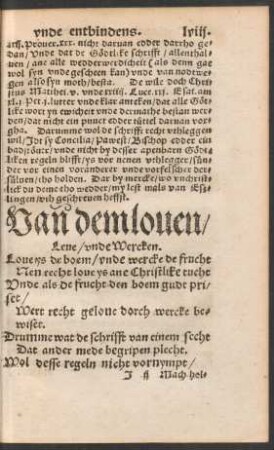 vnde entbindens. lviij.
att. prouer. xxx. nicht daruan edder dartho ge-
dan/ Vnde dat de Gödtlike schrifft/ allenthal-
uen/ ane alle wedderwerdicheit (als denn gar
wol syn vnde gescheen kan) vnde van nodrwe-
gen also syn moth/ besta. De wile doch Chri-
stus Matthei. v. vnde xxiiij. Luce. xvj. Esat. am
xl. j. Pet. j. lutter vnde klar anteken/ dat alle Göt-
like wort yn ewicheit vnde dermathe bestan wer-
den/ dat nicht ein punct edder tüttel daruan vor-
gha. Darumme wol de schrifft recht vthleggen
wil/ Idt sy Concilia/ Pawest/ Bischop edder ein
bad/ vnde nicht by desser apenbarn Göt-
liken regeln blifft/ ys vor nenen vthlegger/ sün-
der vor einen voränderer vnde vorfelscher der-
süluen/ tho holden. Dar by mercke/ wo vnchrist-
lick du deme tho wedder/ my lest mals van Es-
lingen/ vth geschreuen heffst.
Van dem louen/
Leue/ vnde Wercken.
Loue ys de boem/ vnde wercke de frucht
Nen recht loue ys ane Christlike tucht
Vnde als de frucht den boem gude pri-
set/
Wert recht geloue dorch wercke be-
wiset.
Drumme wat de schrifft van einem secht
Dat ander mede begripen plecht.
Wol desse regeln nicht vornympt/
J ij Mach hol-